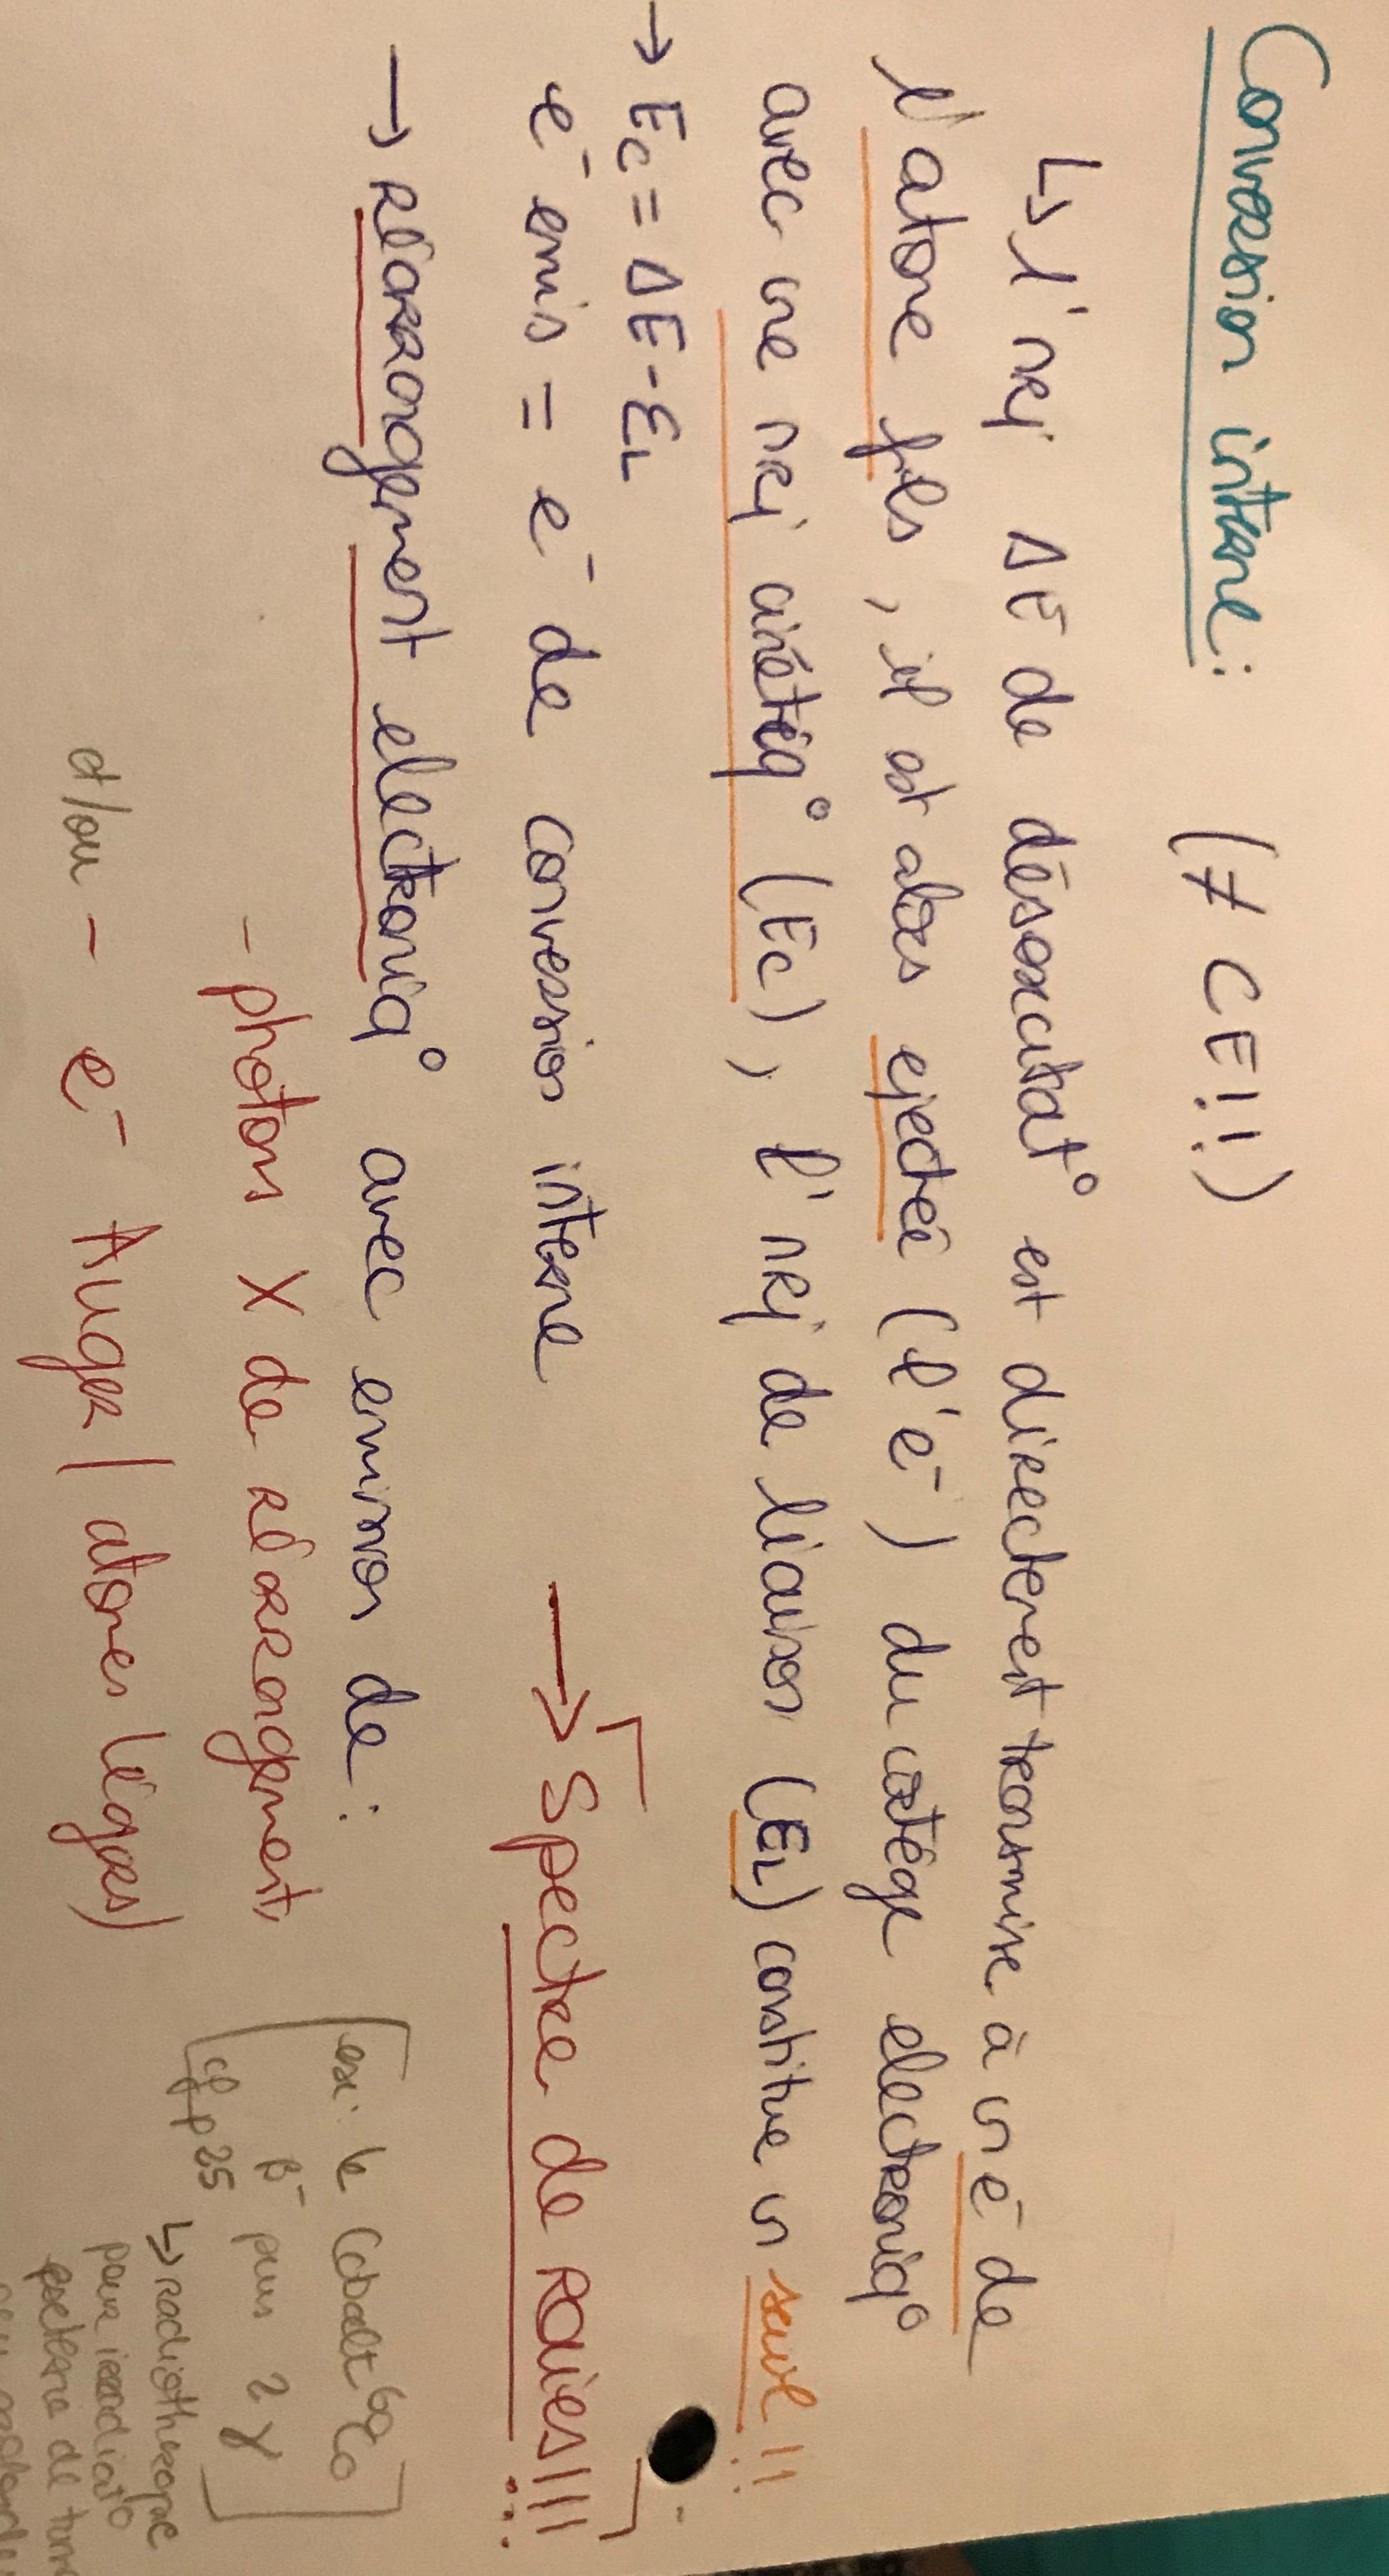 Conversion interne : (≠ CE!!)
↳ l'nrj ΔE de désexcitat° est directement transmise à un é de
l'atome fils, il est alors ejecté (l'e⁻) du cortège electroniq°
avec une nrj cinétiq° (Ec), l'nrj de liaison (EL) constitue un seuil !!
→ Ec = ΔE - EL
e⁻ emis = e⁻ de conversion interne → Spectre de raies!!!
→ réarrangement electroniq° avec emission de :
- photons X de réarrangement
et/ou - e⁻ Auger (atomes légers)
ex: le Cobalt ⁶⁰Co
β⁻ puis 2 γ
cf p 25
↳ radiotherapie
pour irradiat°
externe de